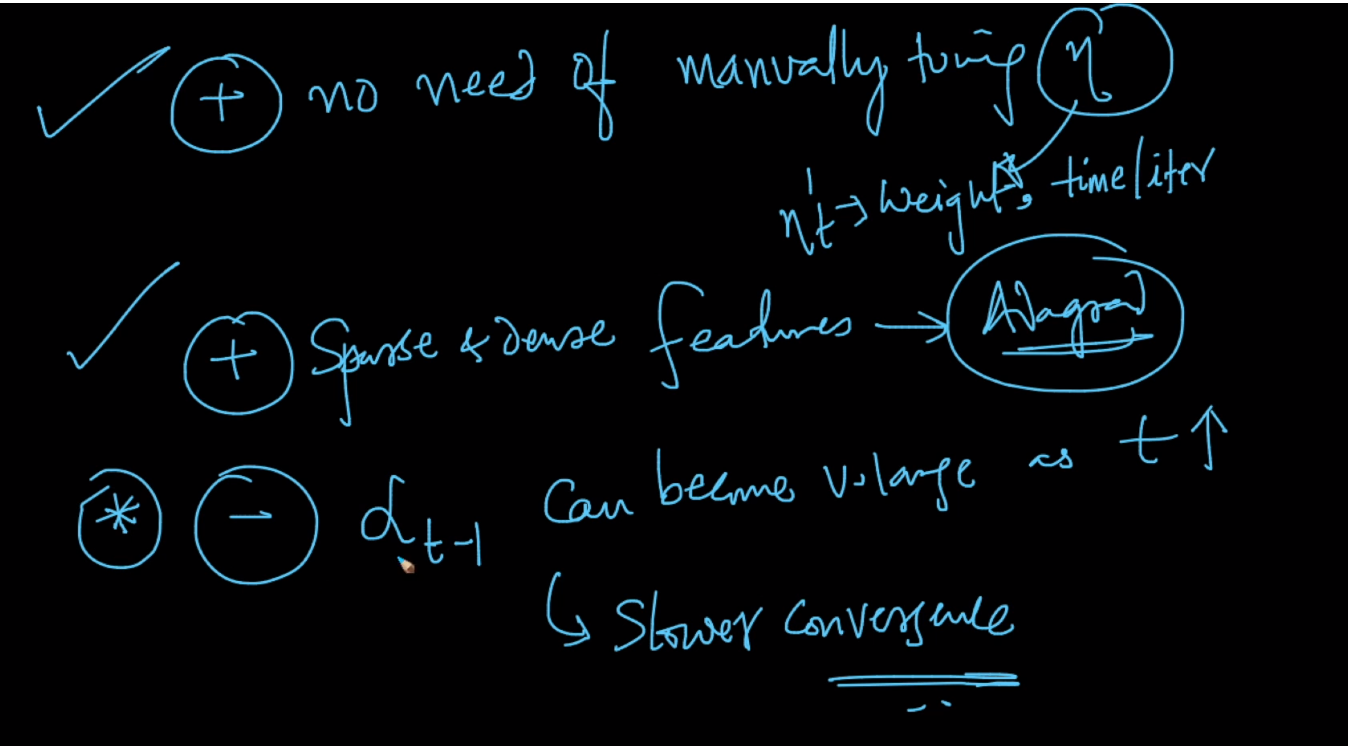 + no need of manually tuning η
η't → weight, time/iter
+ Sparse & Dense features → Adagrad
* - α t-1 Can become v.large as t ↑
↳ Slower convergence